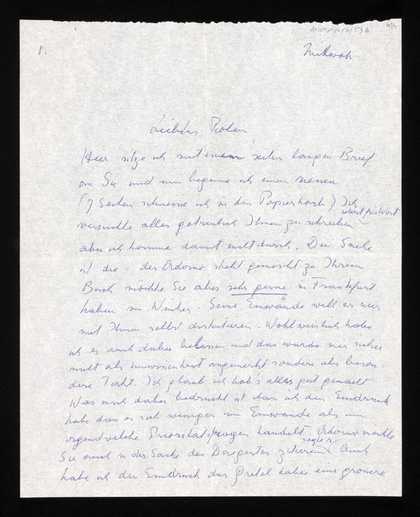 1.
Mittwoch
Lieber
Hier sitze ich mit einem seiten langen Brief
an Sie und nun beginne ich einen neuen
(7 Seiten schmeisse ich in den Papierkorb) Ich
versuchte alles Ihnen zu schreiben
aber ich komme damit nicht durch. Die Sache
ist die: der Adorno steht zu Ihrem
Buch möchte Sie aber sehr gerne in Frankfurt
haben im Winter. Seine Einwände will er nur
mit Ihnen selbst diskutieren. Wohlweislich habe
ich es auch dabei belassen und das wurde mir sicher
nicht als angemerkt sondern als beson-
dere Takt. Ich glaub ich hab's alles gut gemacht
Was mich dabei bedrückt ist dass ich den Eindruck
habe dass es sich weniger um Einwände als um
irgendwelche handelt. Adorno möchte
Sie auch in der Sache des Dirigenten Auch
habe ich den Eindruck das Gretel dabei eine grössere